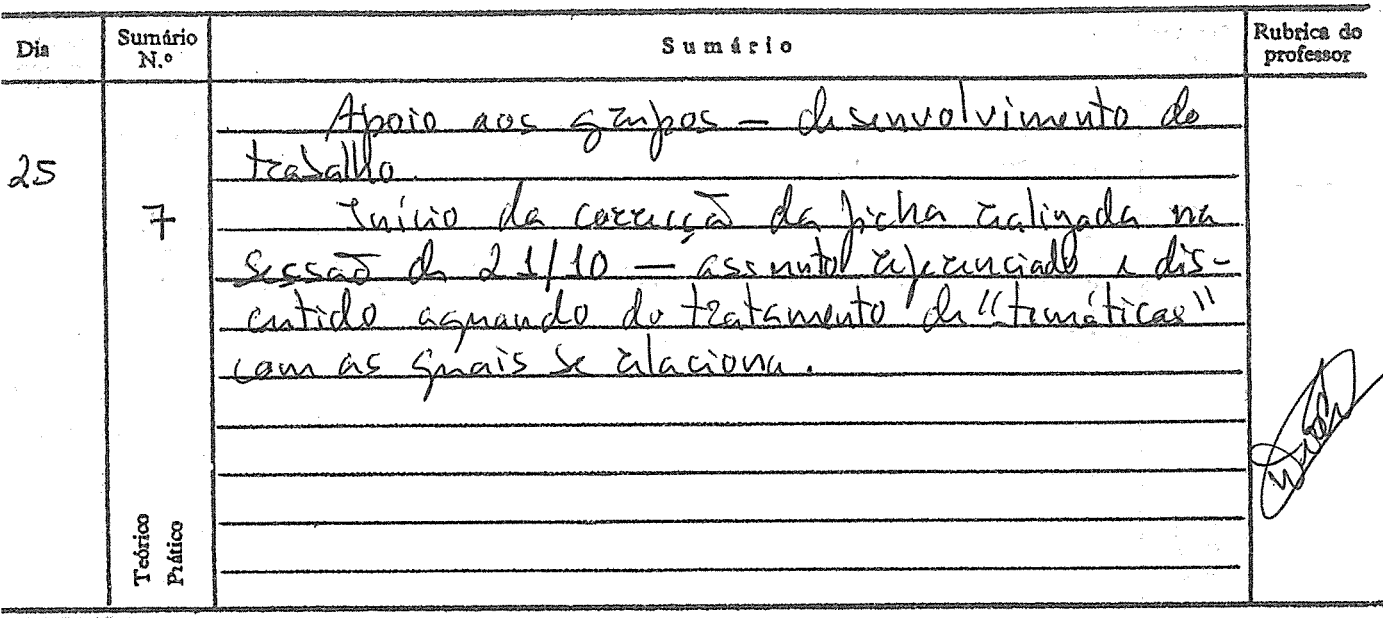 Dia
Sumário N.º
Sumário
Rubrica do professor
25
7
Teórico
Prático
Apoio aos grupos — desenvolvimento do
trabalho.
Início da correcção da ficha realizada na
sessão de 21/10 — assunto referenciado e dis-
cutido aquando do tratamento de "temáticas"
com as quais se relaciona.